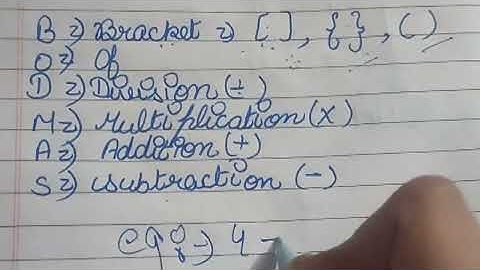 B => Bracket => [ ], { }, ( )
O => Of
D => Division (÷)
M => Multiplication (×)
A => Addition (+)
S => Subtraction (-)
eg: => 4 -